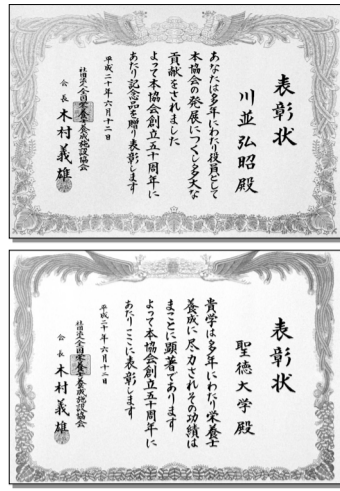 表彰状
川並弘昭殿
あなたは多年にわたり役員として
本協会の発展につくし多大な
貢献をされました
よって本協会創立五十周年に
あたり記念品を贈り表彰します
平成二十年六月十二日
社団法人全国栄養士養成施設協会
会長木村義雄
表彰状
聖徳大学殿
貴学は多年にわたり栄養士
養成に尽力されその功績は
まことに顕著であります
よって本協会創立五十周年に
あたりここに表彰します
平成二十年六月十二日
社団法人全国栄養士養成施設協会
会長木村義雄